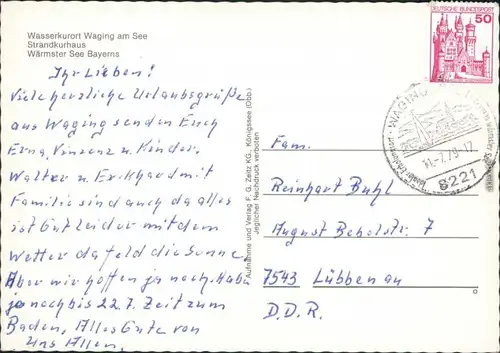 Wasserkurort Waging am See
Strandkurhaus
Wärmster See Bayerns
DEUTSCHE BUNDESPOST
50
WAGING
11.-7.79-17
8221
Ihr Lieben!
Viele herzliche Urlaubsgrüße
aus Waging senden Euch
Erna, Vinzenz u. Kinder.
Walter u. Erikhard mit
Familie sind auch da alles
ist Gut leider mit dem
Wetter da feld die Sonne
Aber wir hoffen ja noch. Habe
ja noch bis 22.7. Zeit zum
Baden, Alles Gute von
Uns Allen.
Aufnahme und Verlag F. G. Zeitz KG., Königssee (Obb.)
Jeglicher Nachdruck verboten
Fam.
Reinhart Buhl
August Bebelstr. 7
7543 Lübbenau
D.D.R.